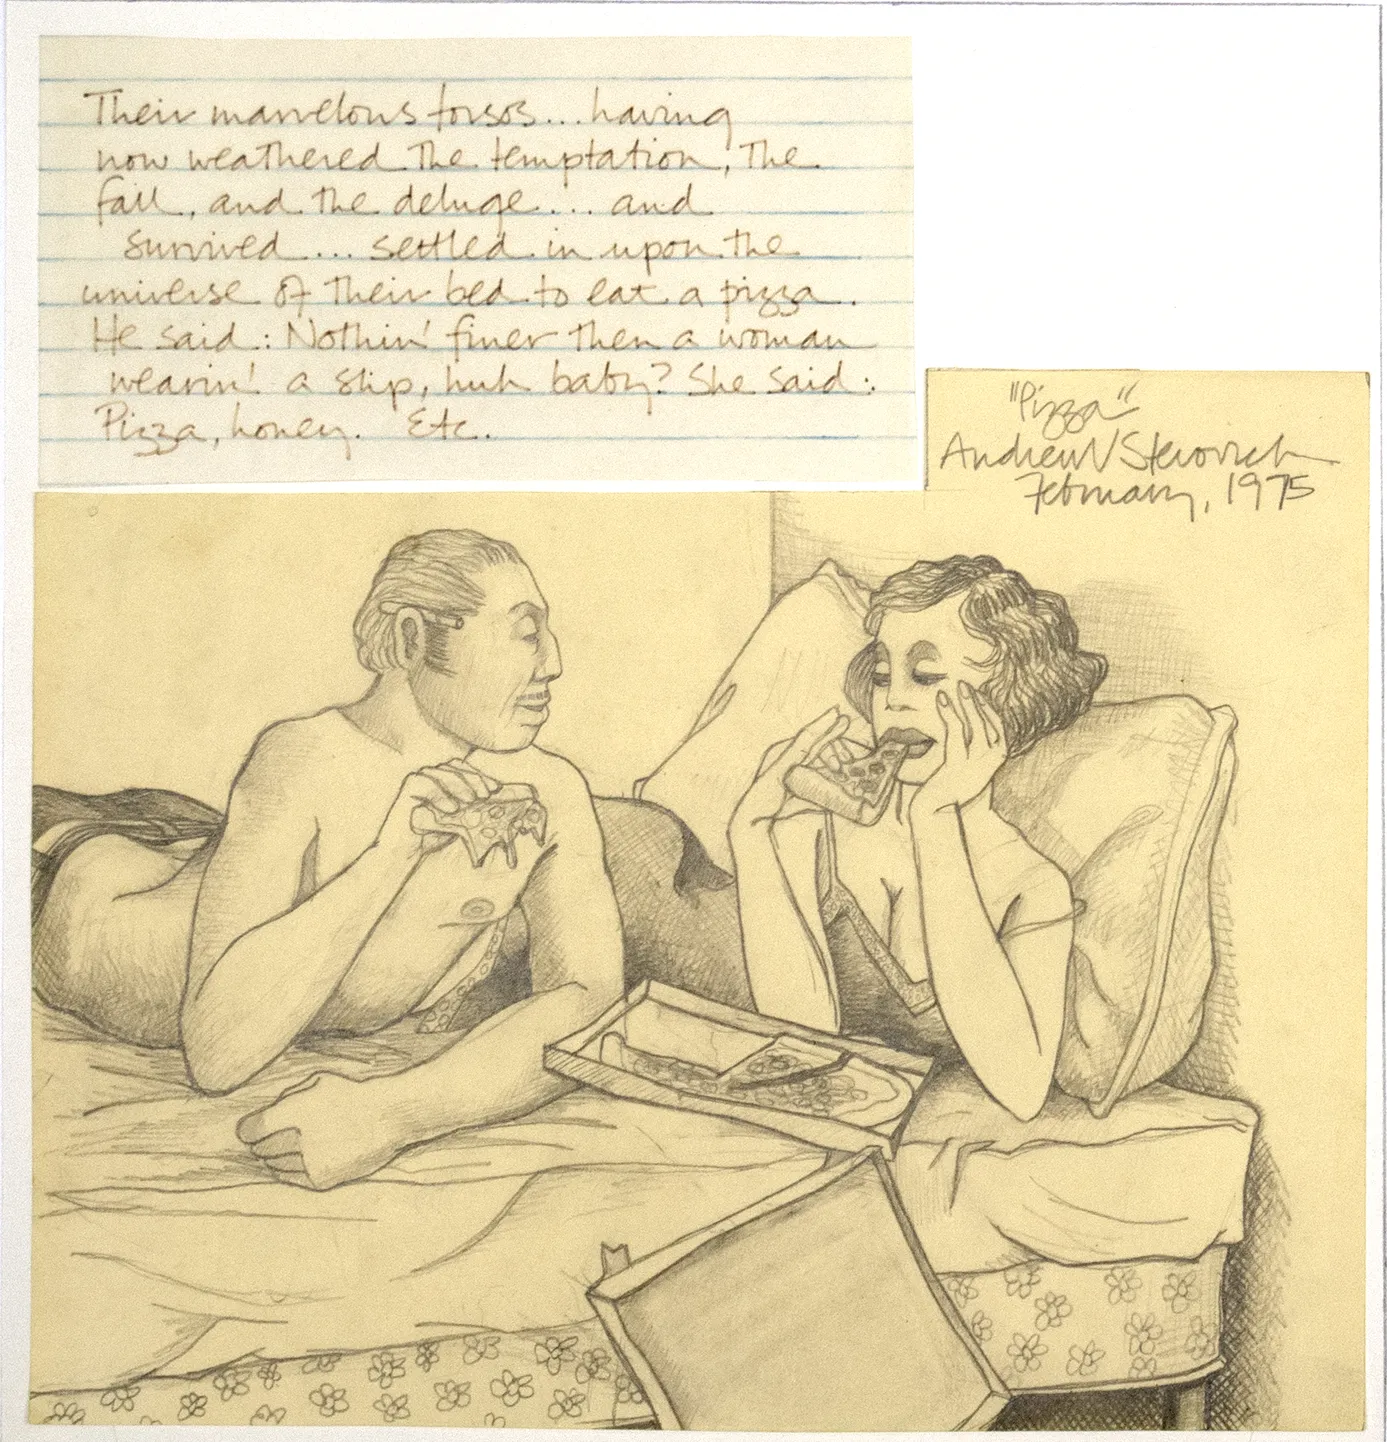 Their marvelous torsos... having
now weathered the temptation, the
fall, and the deluge... and
survived... settled in upon the
universe of their bed to eat a pizza.
He said: Nothin' finer then a woman
wearin' a slip, huh baby? She said:
Pizza, honey. Etc.
"Pizza"
Andrew Stevovich
February, 1975